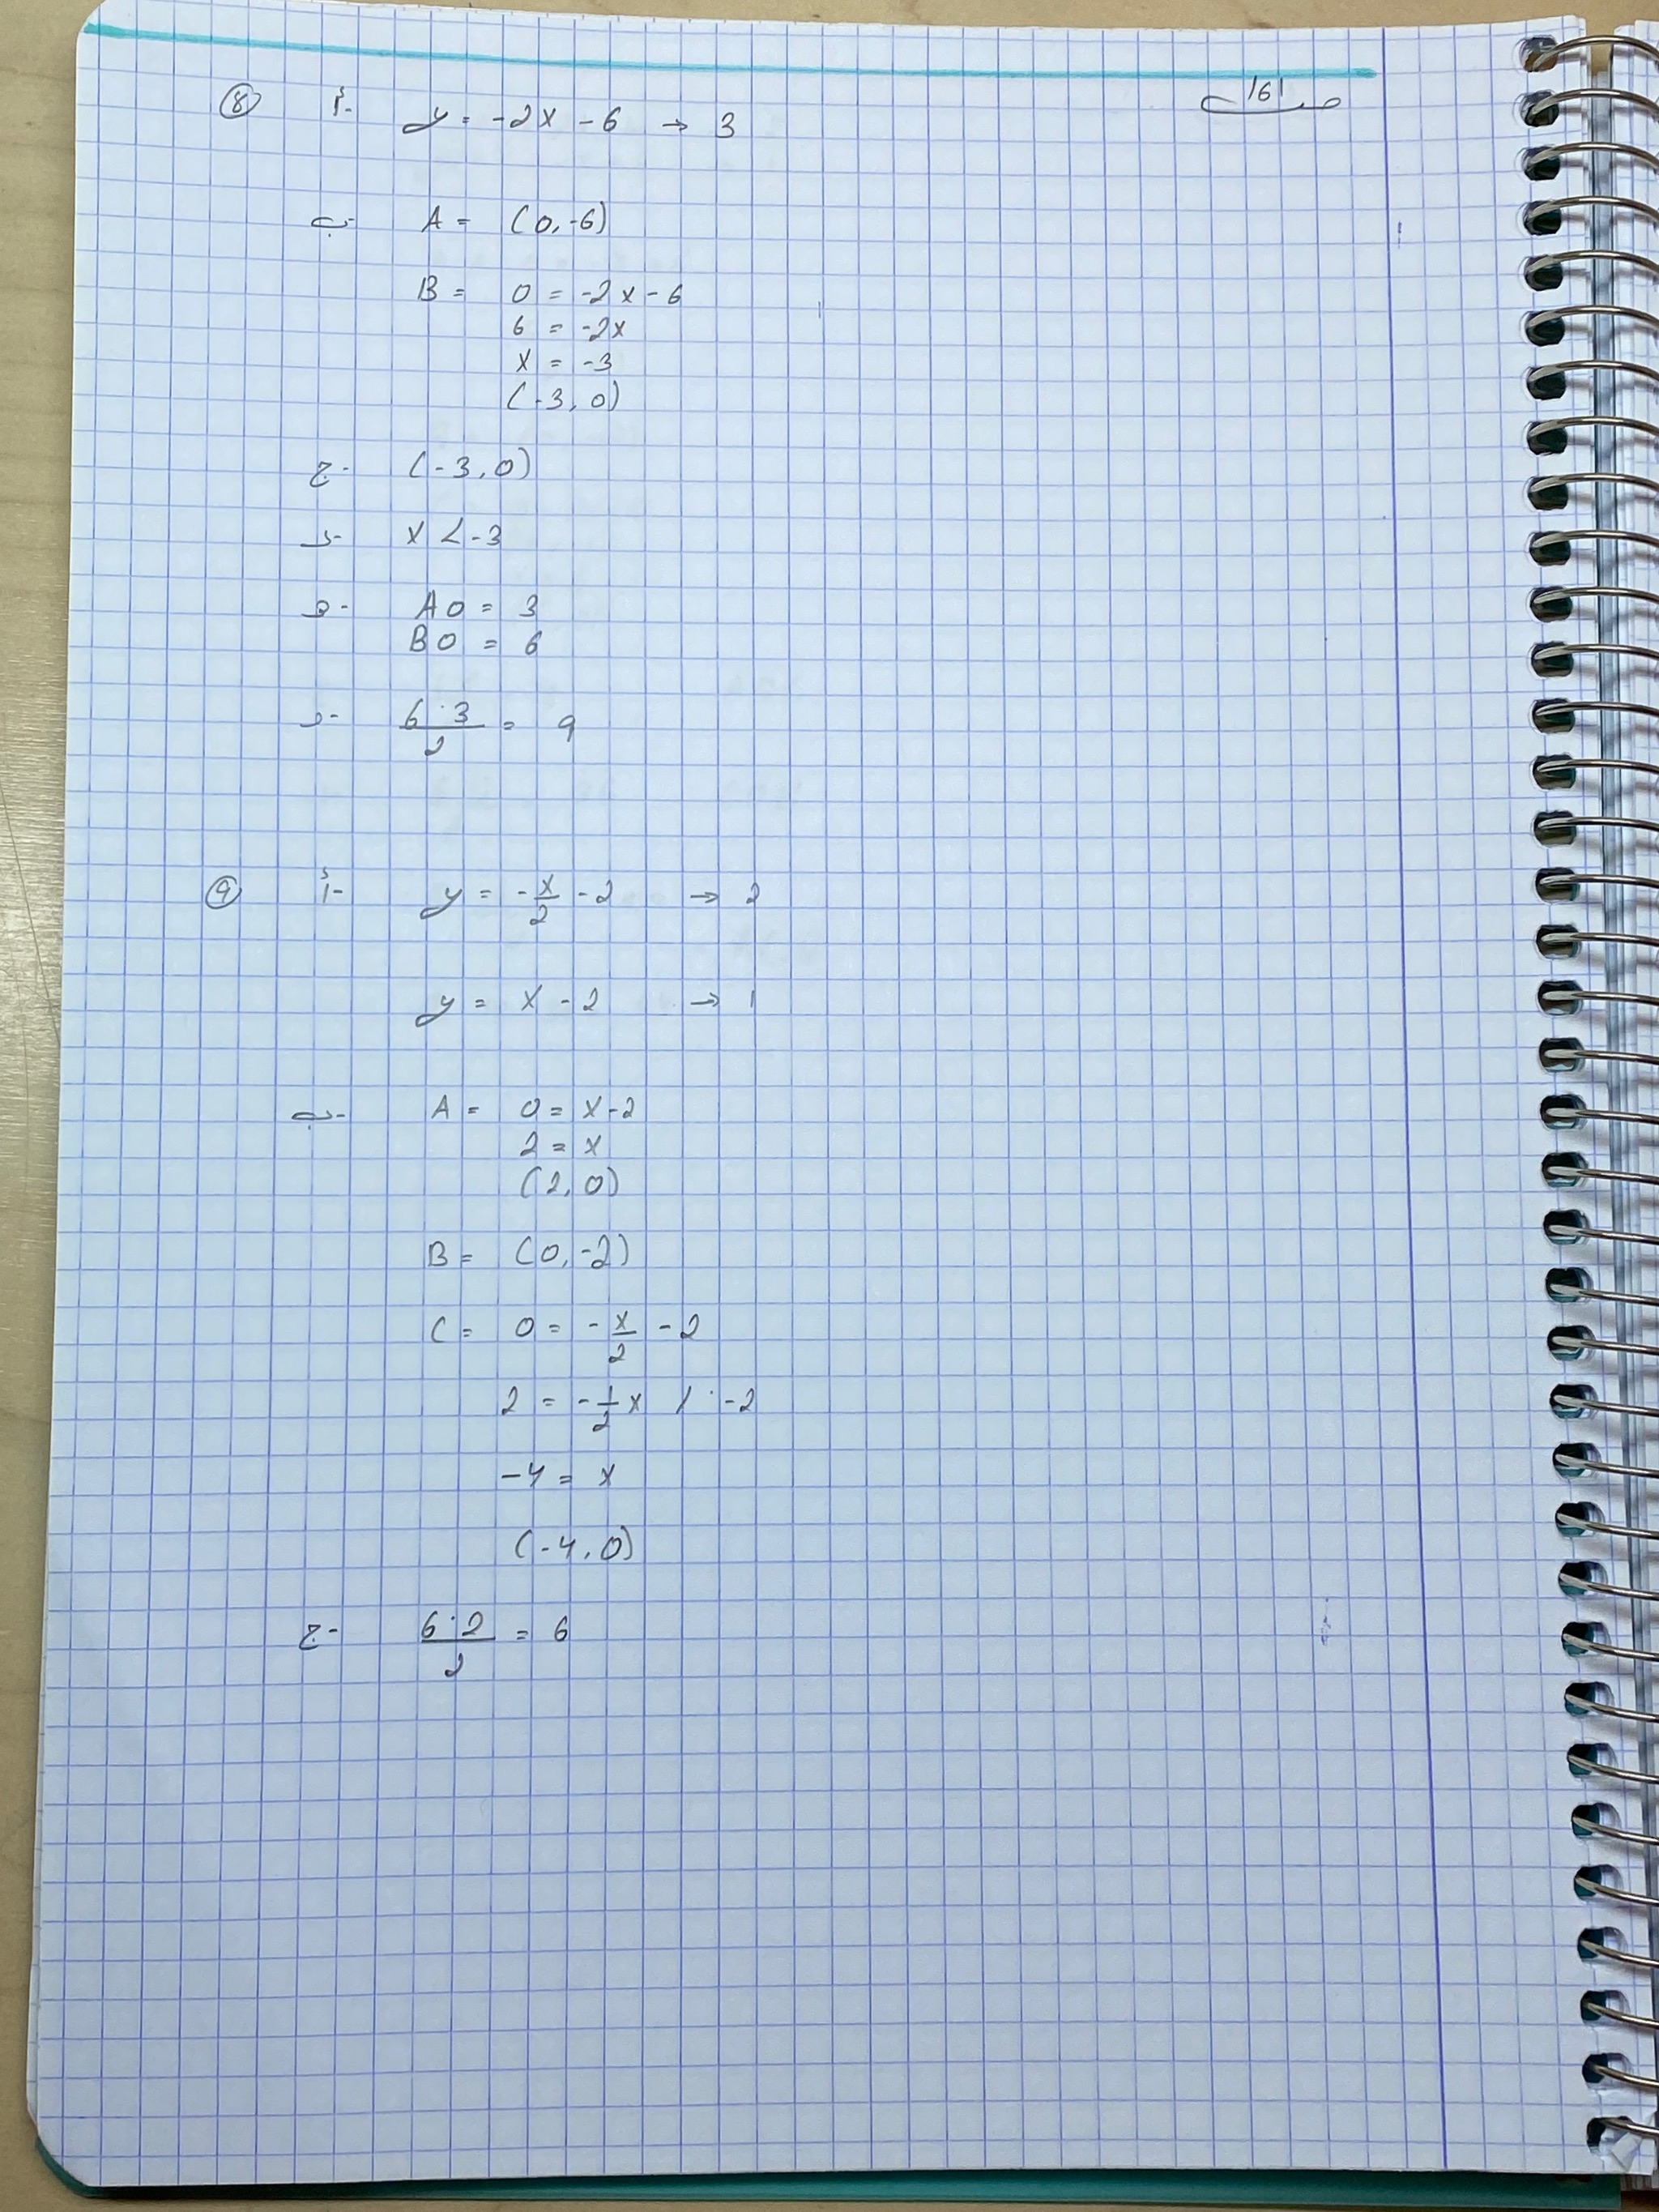 ص 161
⑧ أ- y = -2x - 6 → 3
ب- A = (0,-6)
B = 0 = -2x - 6
6 = -2x
x = -3
(-3, 0)
ج- (-3,0)
د- x < -3
ه- AO = 3
BO = 6
و- 6·3/2 = 9
⑨ أ- y = -x/2 - 2 → 2
y = x - 2 → 1
ب- A = 0 = x-2
2 = x
(2,0)
B = (0,-2)
C = 0 = -x/2 - 2
2 = -1/2 x / · -2
-4 = x
(-4,0)
ج- 6·2/2 = 6